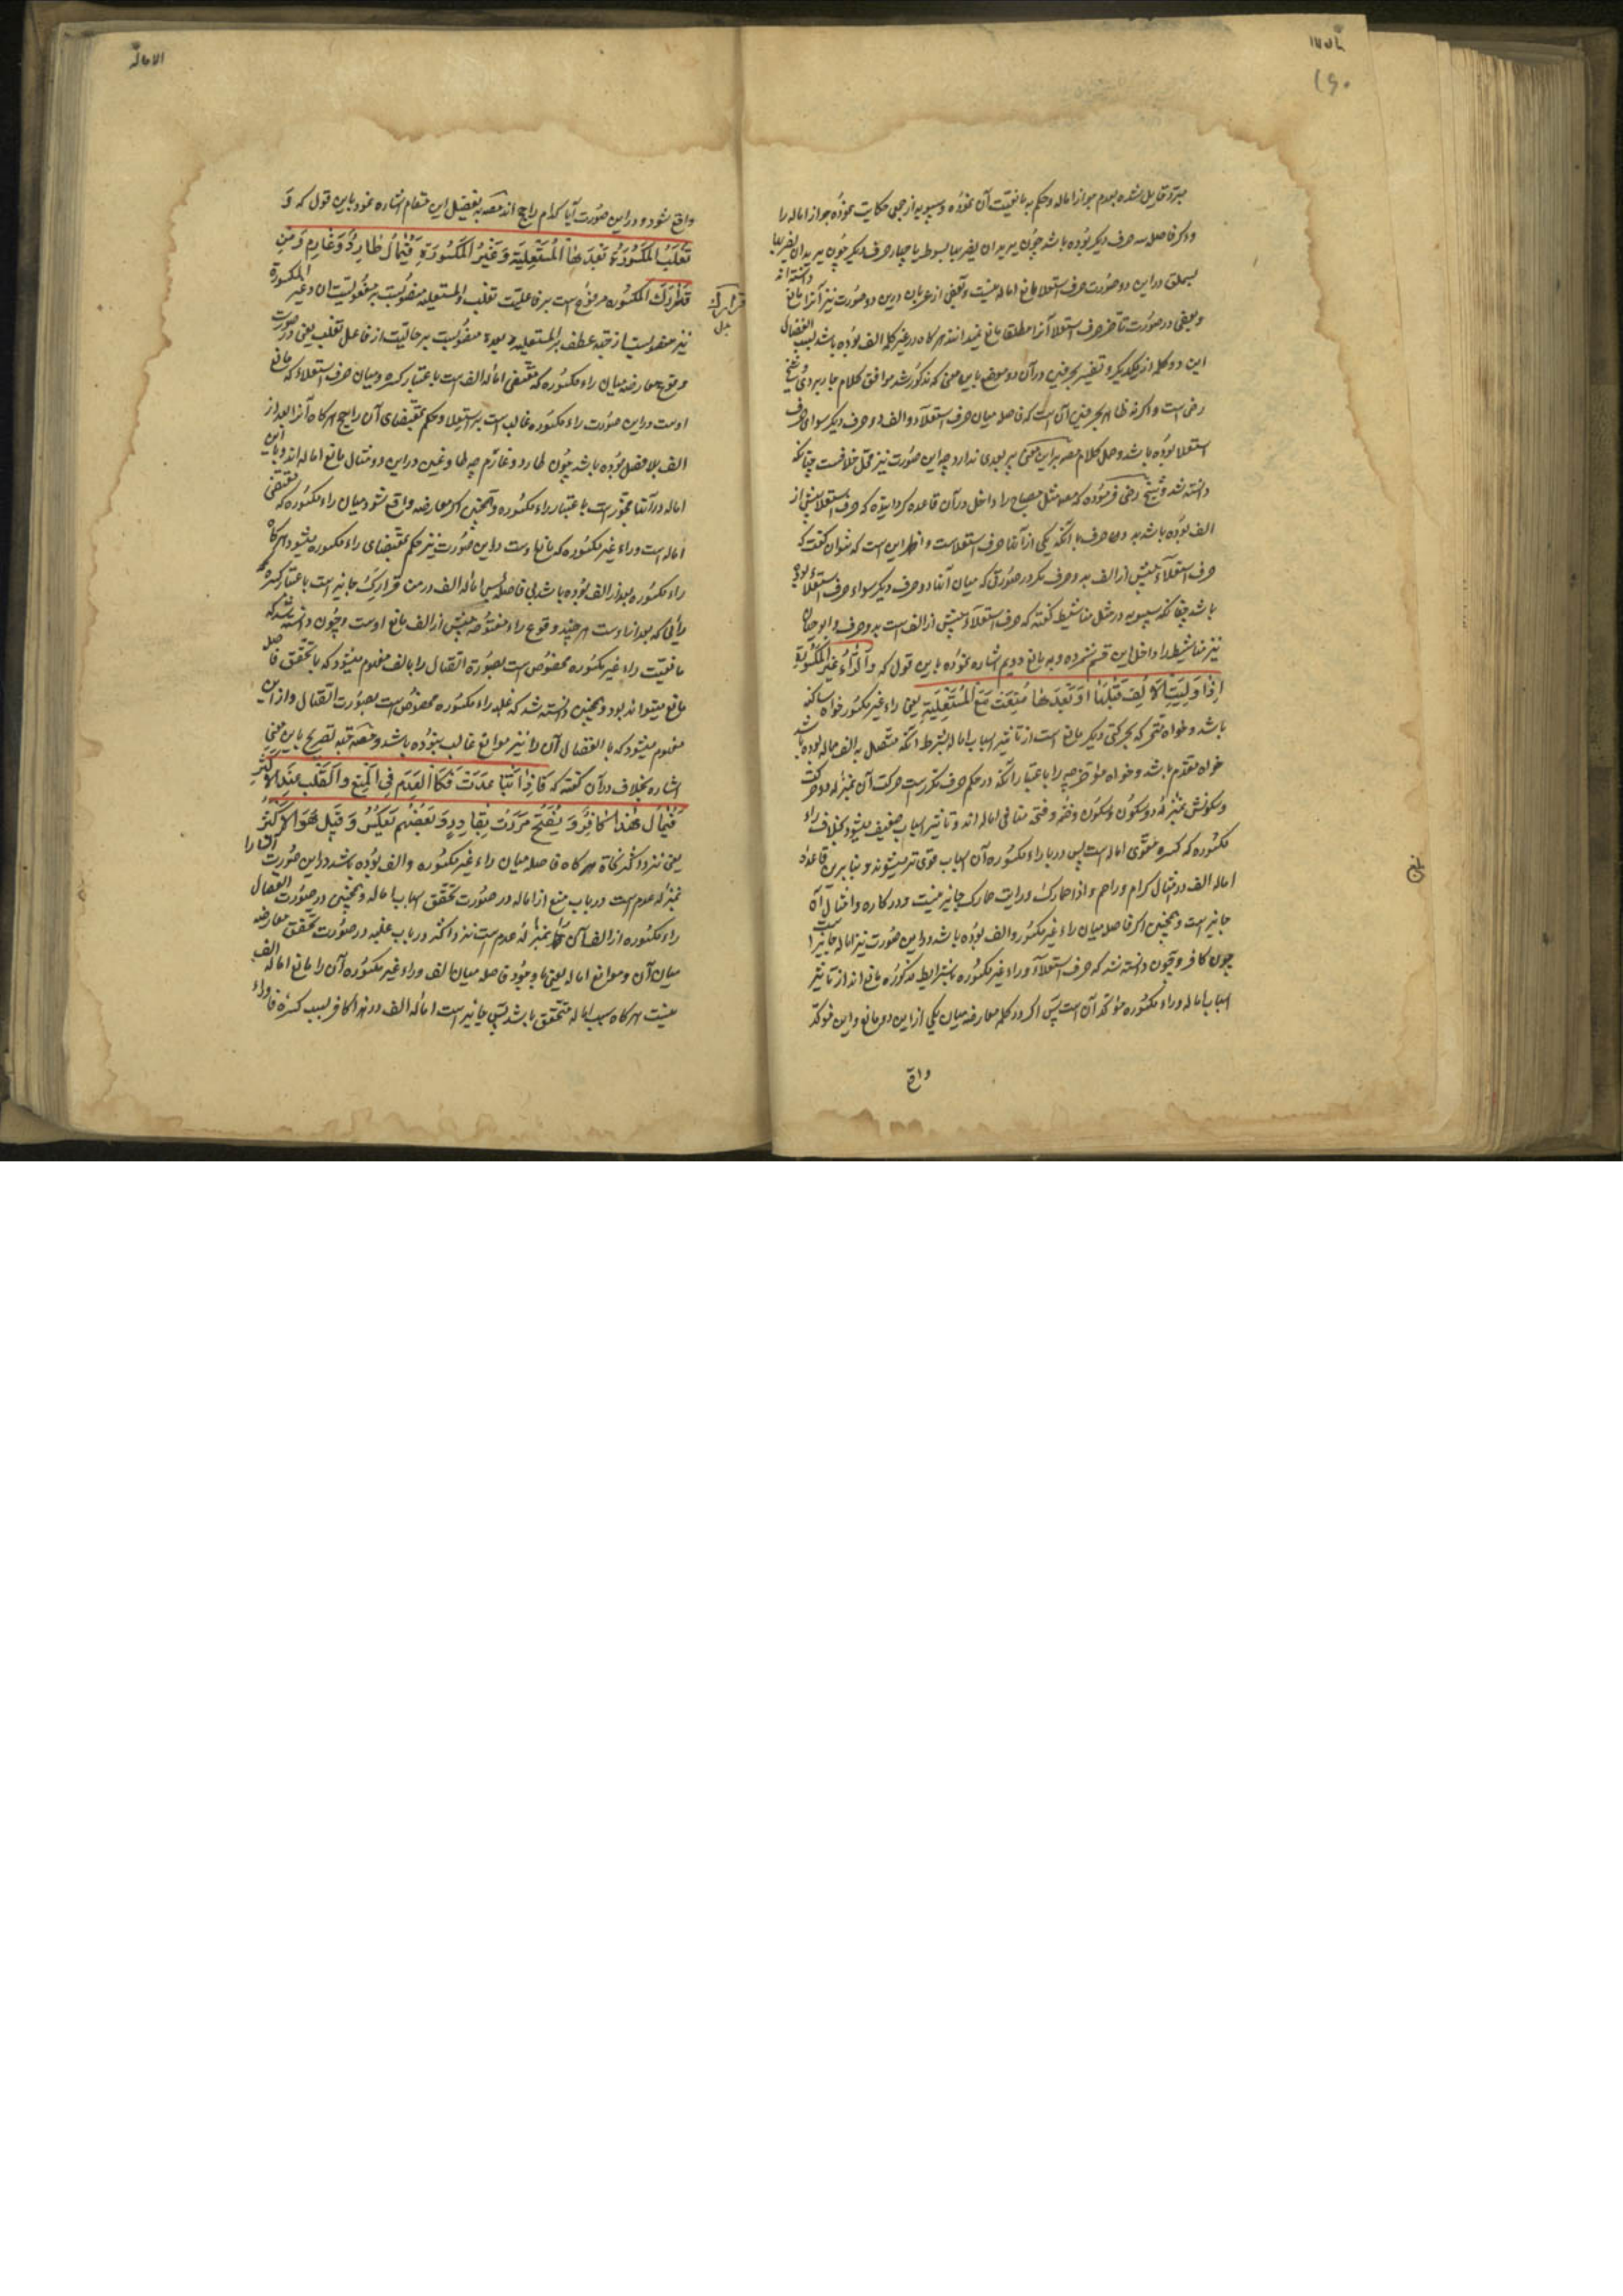 الاماله
۱۶۰
مبرد قایل شده بعدم جواز اماله و حکم به مانعیت آن نموده و سیبویه از جمعی حکایت نموده جواز اماله را
و اگر فاصله سه حرف دیگر بوده باشد چون یریدان یضربها بسوط یا چهار حرف دیگر چون یریدان یضربها
بسملق در این دو صورت حرف استعلا مانع اماله نیست و بعضی از عربان درین دو صورت نیز آنرا مانع
دانسته‌اند
و بعضی در صورت تأخر حرف استعلا آنرا مطلقا مانع نمیدانند هرگاه در غیر کلمه الف بوده باشد بسبب انفصال
این دو کلمه از یکدیگر و تفسیر بحرفین در آن دو موضع باین معنی که مذکور شد موافق کلام جاربردی و شیخ
رضی است و اگرنه ظاهر بحرفین آن است که فاصله میان حرف استعلاء و الف دو حرف دیگر سوای حرف
استعلا بوده باشد و حمل کلام مصنف بر این معنی پر بعدی ندارد چه این صورت نیز محل خلافست چنانکه
دانسته شد و شیخ رضی فرموده که مصنف مثل مصباح را داخل در آن قاعده گردانیده که حرف استعلا پیش از
الف بوده باشد بدو حرف با آنکه یکی از آنها حرف استعلاست و اظهر این است که نتوان گفت که
حرف استعلاء پیش از الف بدو حرف مگر در صورتی که میان آنها دو حرف دیگر سواء حرف استعلاء بوده
باشد چنانکه سیبویه در مثل مناشیط گفته که حرف استعلاء پیش از الف است بدو حرف و ابو حیان
نیز مناشیط را داخل این قسم شمرده و به مانع دویم اشاره نموده باین قول که و الراء غیر المکسورة
اذا ولیت الالف قبلها او بعدها منعت منع المستعلیة یعنی راء غیر مکسور خواه ساکنه
باشد و خواه متحرکه بحرکتی دیگر مانع است از تأثیر اسباب اماله بشرط آنکه متصل به الف مماله بوده باشد
خواه مقدم باشد و خواه مؤخر چه را باعتبار آنکه در حکم حرف مکرر است حرکت آن بمنزله دو حرکت
و سکونش بمنزله دو سکون و سکون و ضمه و فتحه منافی اماله اند و تأثیر اسباب ضعیف میشود بخلاف راء
مکسوره که کسره مقوی اماله است پس در با راء مکسوره آن اسباب قوی تر میشوند و بنابرین قاعده
اماله الف در مثال کرام و راحم و اذا حمارک و رایت حمارک جایز نیست و در کاره و امثال آن
جایز است و همچنین اگر فاصله میان راء غیر مکسور و الف بوده باشد در این صورت نیز اماله جایز است
چون کافر و چون دانسته شد که حرف استعلاء و راء غیر مکسوره بشرایط مذکوره مانع اند از تأثیر
اسباب اماله و راء مکسوره مؤکد آن است پس اگر در کلمه معارضه میان یکی از این دو مانع و این مؤکد
واقع
الاماله
واقع شود و در این صورت آیا کدام راجح اند مصنف بتفصیل این مقام اشاره نمود باین قول که و
تغلب المکسورة بعدها المستعلیة و غیر المکسورة فیمال طارد و غارم و من
قرارک المکسوره مرفوع است بر فاعلیت تغلب و المستعلیه منصوبست بر مفعولیت آن و غیر المکسورة
نیز منصوبست از جهة عطف بر المستعلیه و بعدها منصوبست بر حالیت از فاعل تغلب یعنی در صورت
وقوع معارضه میان راء مکسوره که مقتضی اماله الف است باعتبار کسره و میان حرف استعلاء که مانع
اوست در این صورت راء مکسوره غالب است بر استعلا و حکم بمقتضای آن راجح هرگاه آنرا بعد از
الف بلافصل بوده باشد چون طارد و غارم چه طا و غین در این دو مثال مانع اماله اند و با این
اماله در آنها مجوز است باعتبار راء مکسوره و همچنین اگر معارضه واقع شود میان راء مکسوره که مقتضی
اماله است و راء غیر مکسوره که مانع اوست در این صورت نیز حکم بمقتضای راء مکسوره میشود هرگاه
راء مکسوره بعد از الف بوده باشد بی فاصله پس اماله الف در من قرارک جایز است باعتبار کسره
رائی که بعد از اوست هر چند وقوع راء مفتوحه پیش از الف مانع اوست و چون دانسته شد که
مانعیت راء غیر مکسوره مخصوص است بصورة اتصال را بالف مفهوم میشود که با تحقق فاصله
مانع میتواند بود و همچنین دانسته شد که غلبه راء مکسوره مخصوص است بصورت اتصال و از این
مفهوم میشود که با انفصال آن را نیز موانع غالب نبوده باشد و مصنف جهة تصریح باین معنی
اشاره بخلاف در آن گفته که فاذا تباعدت فکالعدم فی المنع و الغلب عند الاکثر
فیمال هذا کافر و یفتح مررت بقادر و بعضهم یعکس و قیل هو الاکثر
یعنی نزد اکثر نحاة هرگاه فاصله میان راء غیر مکسوره و الف بوده باشد در این صورت آن را
بمنزله عدم است در باب منع از اماله در صورت تحقق اسباب اماله و همچنین در صورت انفصال
راء مکسوره از الف آن را بمنزله عدم است نزد اکثر در باب غلبه در صورت تحقق معارضه
میان آن و موانع اماله یعنی با وجود فاصله میان الف و راء غیر مکسوره آن را مانع اماله الف
نیست هرگاه سبب اماله متحقق باشد پس جایز است اماله الف در هذا کافر بسبب کسره فا و راء
قرارک
بدل